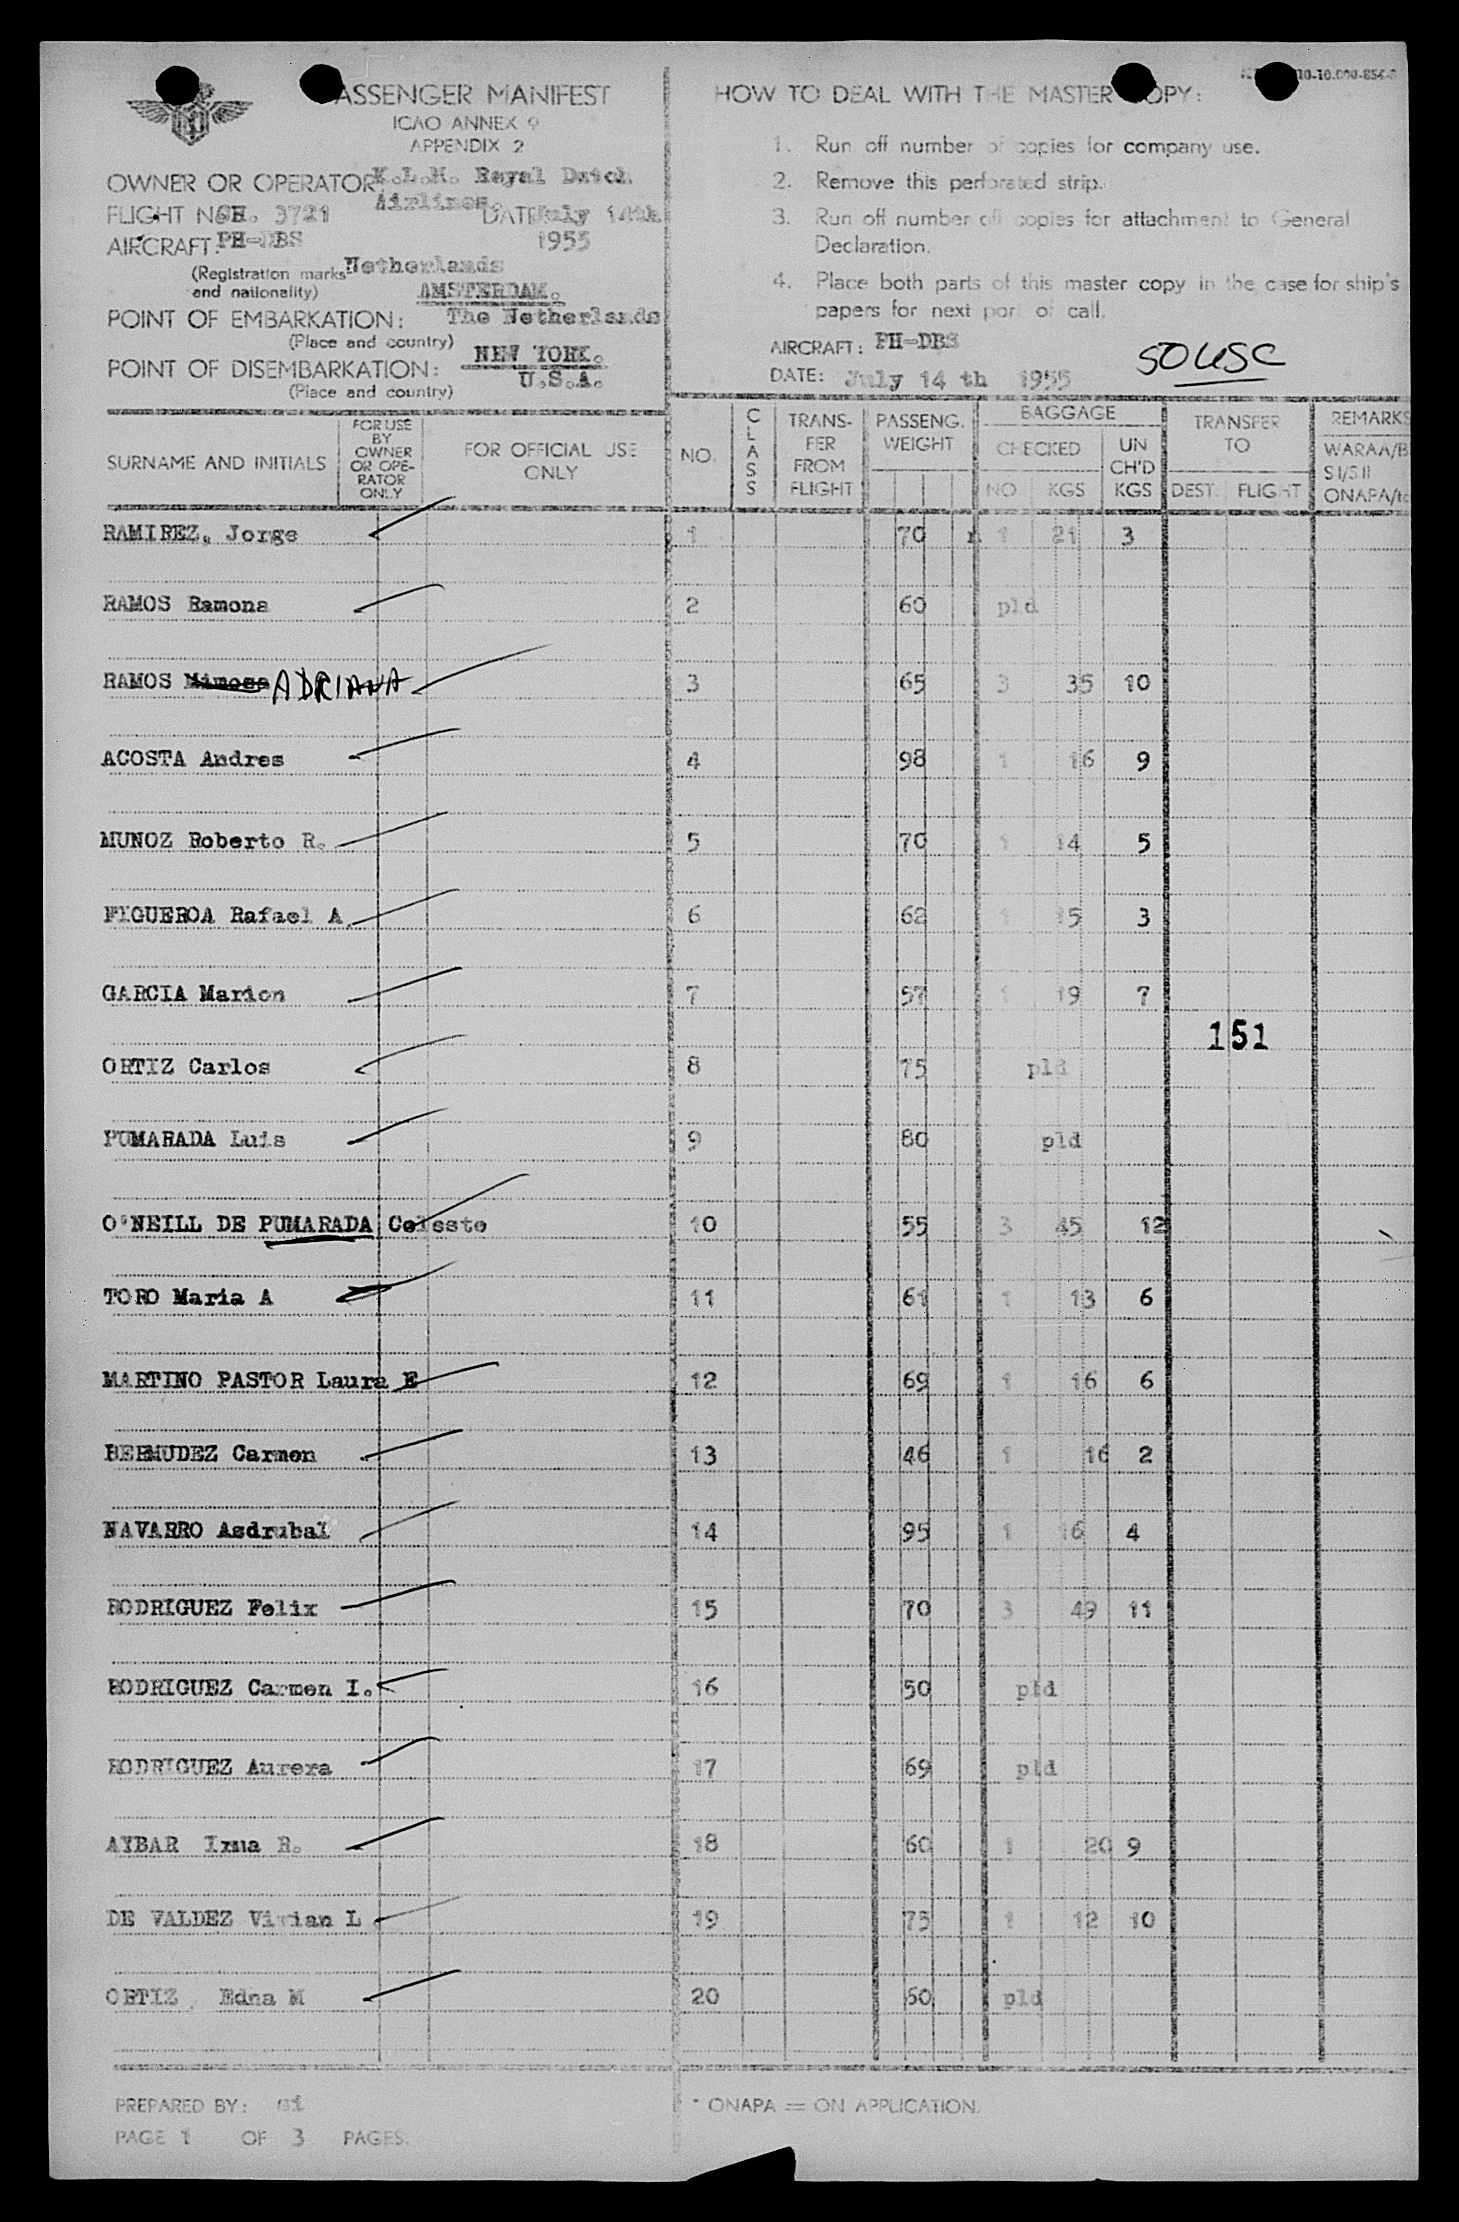 PASSENGER MANIFEST
ICAO ANNEX 9
APPENDIX 2
OWNER OR OPERATOR: K.L.M. Royal Dutch
Airlines.
FLIGHT NO. 3721 DATE July 14th
AIRCRAFT: PH-DBS 1955
(Registration marks Netherlands
and nationality) AMSTERDAM.
POINT OF EMBARKATION: The Netherlands
(Place and country)
POINT OF DISEMBARKATION: NEW YORK.
(Place and country) U.S.A.
HOW TO DEAL WITH THE MASTER COPY:
1. Run off number of copies for company use.
2. Remove this perforated strip.
3. Run off number of copies for attachment to General
Declaration.
4. Place both parts of this master copy in the case for ship's
papers for next port of call.
AIRCRAFT: PH-DBS
DATE: July 14 th 1955
50 USC
SURNAME AND INITIALS
FOR USE BY OWNER OR OPE- RATOR ONLY
FOR OFFICIAL USE ONLY
NO. CLASS TRANS- FER FROM FLIGHT PASSENG. WEIGHT BAGGAGE CHECKED NO KGS UN CH'D KGS TRANSFER TO DEST. FLIGHT REMARKS
WARAA/B
SI/SII
ONAPA/tc
RAMIREZ, Jorge 1 70 1 21 3
RAMOS Ramona 2 60 pld
RAMOS Mimosa ADRIANA 3 65 3 35 10
ACOSTA Andres 4 98 1 16 9
MUNOZ Roberto R. 5 70 1 14 5
FIGUEROA Rafael A 6 62 1 15 3
GARCIA Marion 7 57 1 19 7
151
ORTIZ Carlos 8 75 pld
PUMARADA Luis 9 80 pld
O'NEILL DE PUMARADA Celeste 10 55 3 45 12
TORO Maria A 11 61 1 13 6
MARTINO PASTOR Laura E 12 69 1 16 6
BERMUDEZ Carmen 13 46 1 16 2
NAVARRO Asdrubal 14 95 1 16 4
RODRIGUEZ Felix 15 70 3 49 11
RODRIGUEZ Carmen I. 16 50 pld
RODRIGUEZ Aurera 17 69 pld
AYBAR Irma R. 18 60 1 20 9
DE VALDEZ Vivian L 19 75 1 12 10
ORTIZ, Edna M 20 50 pld
PREPARED BY:
PAGE 1 OF 3 PAGES.
* ONAPA = ON APPLICATION.